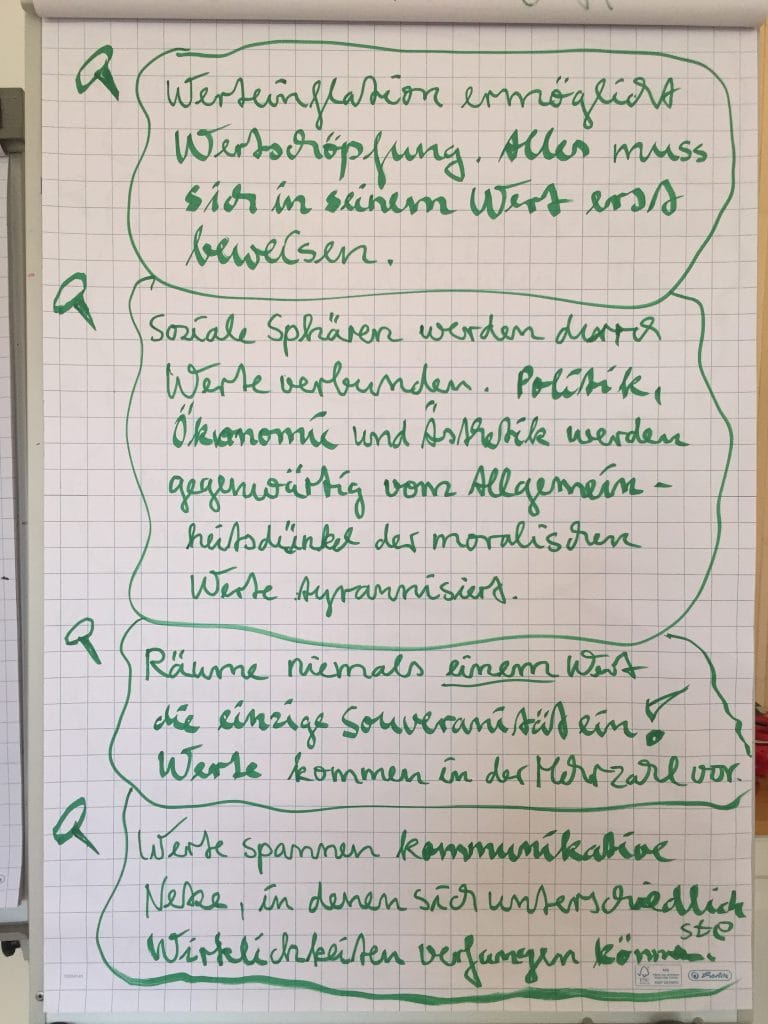 Werteinflation ermöglicht
Wertschöpfung. Alles muss
sich in seinem Wert erst
beweisen.
Soziale Sphären werden durch
Werte verbunden. Politik,
Ökonomie und Ästhetik werden
gegenwärtig vom Allgemein-
heitsdünkel der moralischen
Werte tyrannisiert.
Räume niemals einem Wert
die einzige Souveränität ein!
Werte kommen in der Mehrzahl vor.
Werte spannen kommunikative
Netze, in denen sich unterschiedlich
ste
Wirklichkeiten verfangen können.